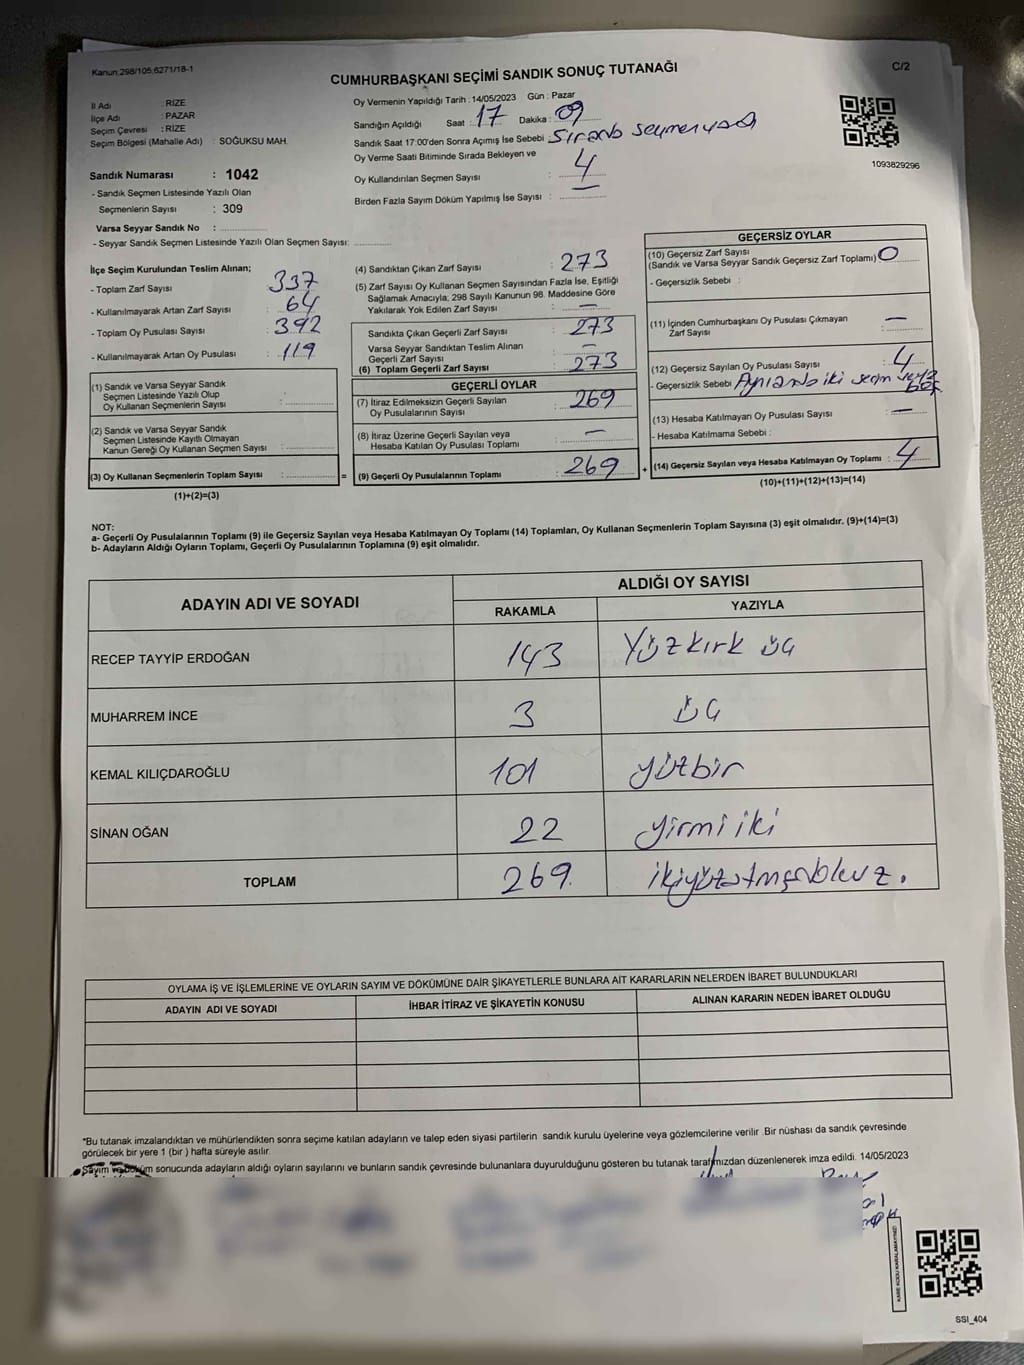 Kanun:298/105;6271/18-1
C/2
CUMHURBAŞKANI SEÇİMİ SANDIK SONUÇ TUTANAĞI
İl Adı : RİZE
İlçe Adı : PAZAR
Seçim Çevresi : RİZE
Seçim Bölgesi (Mahalle Adı) : SOĞUKSU MAH.
Oy Vermenin Yapıldığı Tarih : 14/05/2023 Gün : Pazar
Sandığın Açıldığı Saat : 17 Dakika : 09
Sandık Saat 17:00'den Sonra Açımış İse Sebebi : Sırada seçmen vardı
Oy Verme Saati Bitiminde Sırada Bekleyen ve
Oy Kullandırılan Seçmen Sayısı : 4
Birden Fazla Sayım Döküm Yapılmış İse Sayısı : —
1093829296
Sandık Numarası : 1042
- Sandık Seçmen Listesinde Yazılı Olan
Seçmenlerin Sayısı : 309
Varsa Seyyar Sandık No :
- Seyyar Sandık Seçmen Listesinde Yazılı Olan Seçmen Sayısı:
İlçe Seçim Kurulundan Teslim Alınan;
- Toplam Zarf Sayısı : 337
- Kullanılmayarak Artan Zarf Sayısı : 64
- Toplam Oy Pusulası Sayısı : 392
- Kullanılmayarak Artan Oy Pusulası : 119
(1) Sandık ve Varsa Seyyar Sandık
Seçmen Listesinde Yazılı Olup
Oy Kullanan Seçmenlerin Sayısı :
(2) Sandık ve Varsa Seyyar Sandık
Seçmen Listesinde Kayıtlı Olmayan
Kanun Gereği Oy Kullanan Seçmen Sayısı :
(3) Oy Kullanan Seçmenlerin Toplam Sayısı : =
(1)+(2)=(3)
(4) Sandıktan Çıkan Zarf Sayısı : 273
(5) Zarf Sayısı Oy Kullanan Seçmen Sayısından Fazla İse, Eşitliği
Sağlamak Amacıyla; 298 Sayılı Kanunun 98. Maddesine Göre
Yakılarak Yok Edilen Zarf Sayısı : —
Sandıkta Çıkan Geçerli Zarf Sayısı : 273
Varsa Seyyar Sandıktan Teslim Alınan
Geçerli Zarf Sayısı : —
(6) Toplam Geçerli Zarf Sayısı : 273
GEÇERLİ OYLAR
(7) İtiraz Edilmeksizin Geçerli Sayılan
Oy Pusulalarının Sayısı : 269
(8) İtiraz Üzerine Geçerli Sayılan veya
Hesaba Katılan Oy Pusulası Toplamı : —
(9) Geçerli Oy Pusulalarının Toplamı : 269 +
GEÇERSİZ OYLAR
(10) Geçersiz Zarf Sayısı
(Sandık ve Varsa Seyyar Sandık Geçersiz Zarf Toplamı) 0
- Geçersizlik Sebebi :
(11) İçinden Cumhurbaşkanı Oy Pusulası Çıkmayan
Zarf Sayısı : —
(12) Geçersiz Sayılan Oy Pusulası Sayısı : 4
- Geçersizlik Sebebi : Aynı anda iki seçim veya boş
(13) Hesaba Katılmayan Oy Pusulası Sayısı : —
- Hesaba Katılmama Sebebi :
(14) Geçersiz Sayılan veya Hesaba Katılmayan Oy Toplamı : 4
(10)+(11)+(12)+(13)=(14)
NOT:
a- Geçerli Oy Pusulalarının Toplamı (9) ile Geçersiz Sayılan veya Hesaba Katılmayan Oy Toplamı (14) Toplamları, Oy Kullanan Seçmenlerin Toplam Sayısına (3) eşit olmalıdır. (9)+(14)=(3)
b- Adayların Aldığı Oyların Toplamı, Geçerli Oy Pusulalarının Toplamına (9) eşit olmalıdır.
ADAYIN ADI VE SOYADI
ALDIĞI OY SAYISI
RAKAMLA YAZIYLA
RECEP TAYYİP ERDOĞAN 143 Yüzkırk üç
MUHARREM İNCE 3 üç
KEMAL KILIÇDAROĞLU 101 yüzbir
SİNAN OĞAN 22 yirmi iki
TOPLAM 269. ikiyüzatmışdokuz.
OYLAMA İŞ VE İŞLEMLERİNE VE OYLARIN SAYIM VE DÖKÜMÜNE DAİR ŞİKAYETLERLE BUNLARA AİT KARARLARIN NELERDEN İBARET BULUNDUKLARI
ADAYIN ADI VE SOYADI İHBAR İTİRAZ VE ŞİKAYETİN KONUSU ALINAN KARARIN NEDEN İBARET OLDUĞU
*Bu tutanak imzalandıktan ve mühürlendikten sonra seçime katılan adayların ve talep eden siyasi partilerin sandık kurulu üyelerine veya gözlemcilerine verilir .Bir nüshası da sandık çevresinde
görülecek bir yere 1 (bir ) hafta süreyle asılır.
Sayım ve döküm sonucunda adayların aldığı oyların sayılarını ve bunların sandık çevresinde bulunanlara duyurulduğunu gösteren bu tutanak tarafımızdan düzenlenerek imza edildi. 14/05/2023
SSI_404